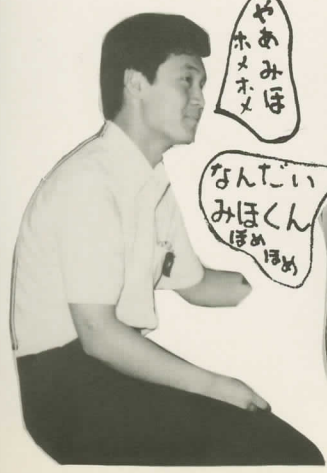 やあみほ
ホメホメ
なんだい
みほくん
ほめ
ほめ